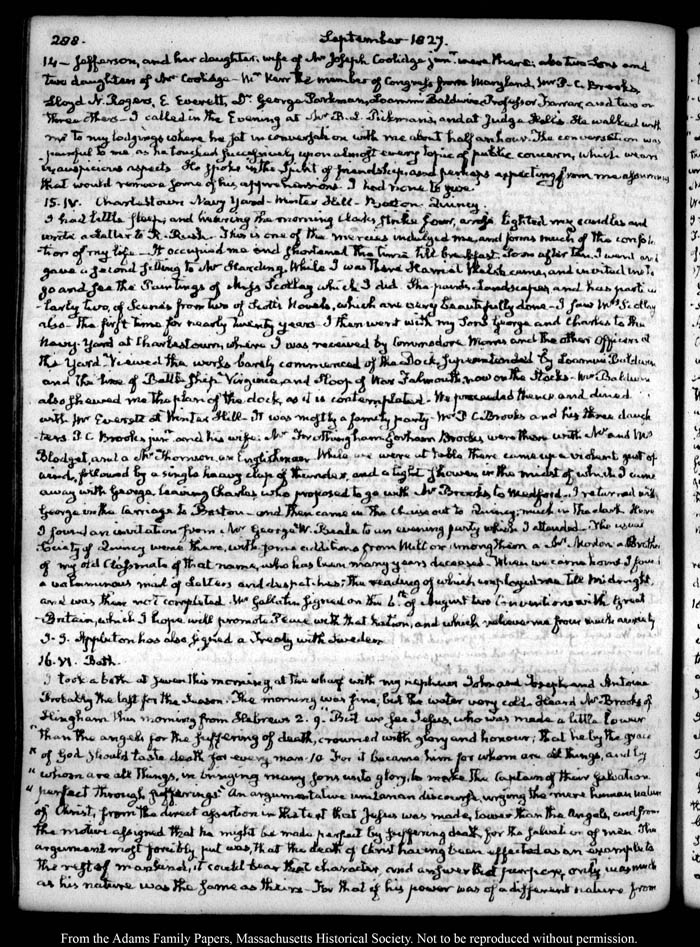 288. September 1827.
14— Jefferson, and her daughter, wife of Mr Joseph Coolidge junr were there; also two Sons and
two daughters of Mr Coolidge— Mr Kerr the member of Congress from Maryland, Mr P. C. Brooks,
Lloyd N. Rogers, E. Everett, Dr George Parkman, Loammi Baldwin, Professor Farrar, and two or
three others— I called in the Evening at Mr B. L. Pickman's, and at Judge Hall's. He walked with
me to my lodgings where he sat in conversation with me about half an hour. The conversation was
painful to me as he touched successively upon almost every topic of public concern, which wears
inauspicious aspects. He spoke in the Spirit of friendship, and perhaps expecting from me assurances
that would remove some of his apprehensions. I had none to give.
15. IV. Charlestown Navy Yard— Winter Hill— Boston. Quincy.
I had little sleep, and hearing the morning clocks strike four, arose, lighted my candles and
wrote a letter to R. Rush. This is one of the mercies indulged me, and forms much of the consola-
tion of my life— It occupied me and shortened the time till breakfast. Soon after ten, I went and
gave a second sitting to Mr Harding. While I was there came, and invited me to
go and see the Paintings of Miss which I did. She paints Landscapes, and has particu-
larly two, of Scenes from two of Scott's Novels, which are very beautifully done— I saw Mrs
also— the first time for nearly twenty years. I then went with my Sons George and Charles to the
Navy-Yard at Charlestown, where I was received by Commodore Morris and the other Officers at
the Yard— Viewed the works barely commenced of the Dock, superintended by Loammi Baldwin
and the Line of Battle Ship Virginia, and Sloop of War Falmouth, now on the Stocks— Mr Baldwin
also shewed me the plan of the dock, as it is contemplated— We proceeded thence and dined
with Mr Everett at Winter Hill— It was mostly a family party— Mr P. C. Brooks and his three daugh-
ters, P. C. Brooks junr and his wife. Mr Frothingham, Gorham Brooks were there with Mr and Mrs
Blodget, and a Mr Thornson, an Englishman. While we were at table there came up a violent gust of
wind, followed by a single heavy clap of thunder, and a light shower in the midst of which I came
away with George, leaving Charles who proposed to go with Mr Brooks to Medford. I returned with
George in the carriage to Boston— and then came in the Chaise out to Quincy, much in the dark. Here
I found an invitation from Mr George W. Beale to an evening party which I attended— The usual
Society of Quincy were there, with some additions from Milton, among them a Mr a Brother
of my old Classmate of that name, who has been many years deceased— When we came home I found
a voluminous mail of Letters and despatches; the reading of which employed me till midnight,
and was then not completed. Mr Gallatin signed on the 6th of August two Conventions with Great
Britain, which I hope will promote Peace with that Nation, and which relieve me from much anxiety
J. J. Appleton has also, signed a Treaty with Sweden.
16. VI. Bath.
I took a bath at seven this morning at the wharf with my nephews John and Joseph and Antoine
Probably the last for the Season. The morning was fine, but the water very cold. Heard Mr Brooks of
Hingham this morning from Hebrews 2. 9. "But we see Jesus, who was made a little lower
"than the angels for the suffering of death, crowned with glory and honour; that he by the grace
" of God should taste death for every man. 10. For it became him for whom are all things, and by
" whom are all Things, in bringing many sons unto glory, to make the Captain of their Salvation
" perfect through sufferings." An argumentative unitarian discourse, urging the mere human nature
of Christ, from the direct assertion in the text that Jesus was made, lower than the Angels, and from
the motive assigned that he might be made perfect by suffering death, for the salvation of men. The
argument most forcibly put was, that the death of Christ having been effected as an example to
the rest of mankind, it could bear that character, and answer that purpose, only inasmuch
as his nature was the same as theirs— For that if his power was of a different nature from
From the Adams Family Papers, Massachusetts Historical Society. Not to be reproduced without permission.